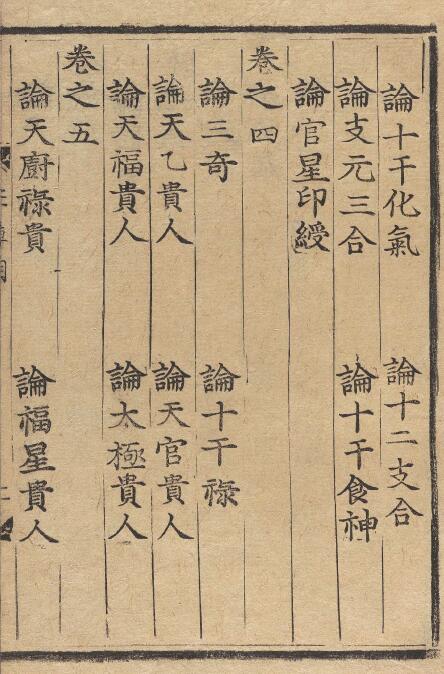 論十干化氣　論十二支合
論支元三合　論十干食神
論官星印綬
卷之四
論三奇　論十干祿
論天乙貴人　論天官貴人
論天福貴人　論太極貴人
卷之五
論天廚祿貴　論福星貴人